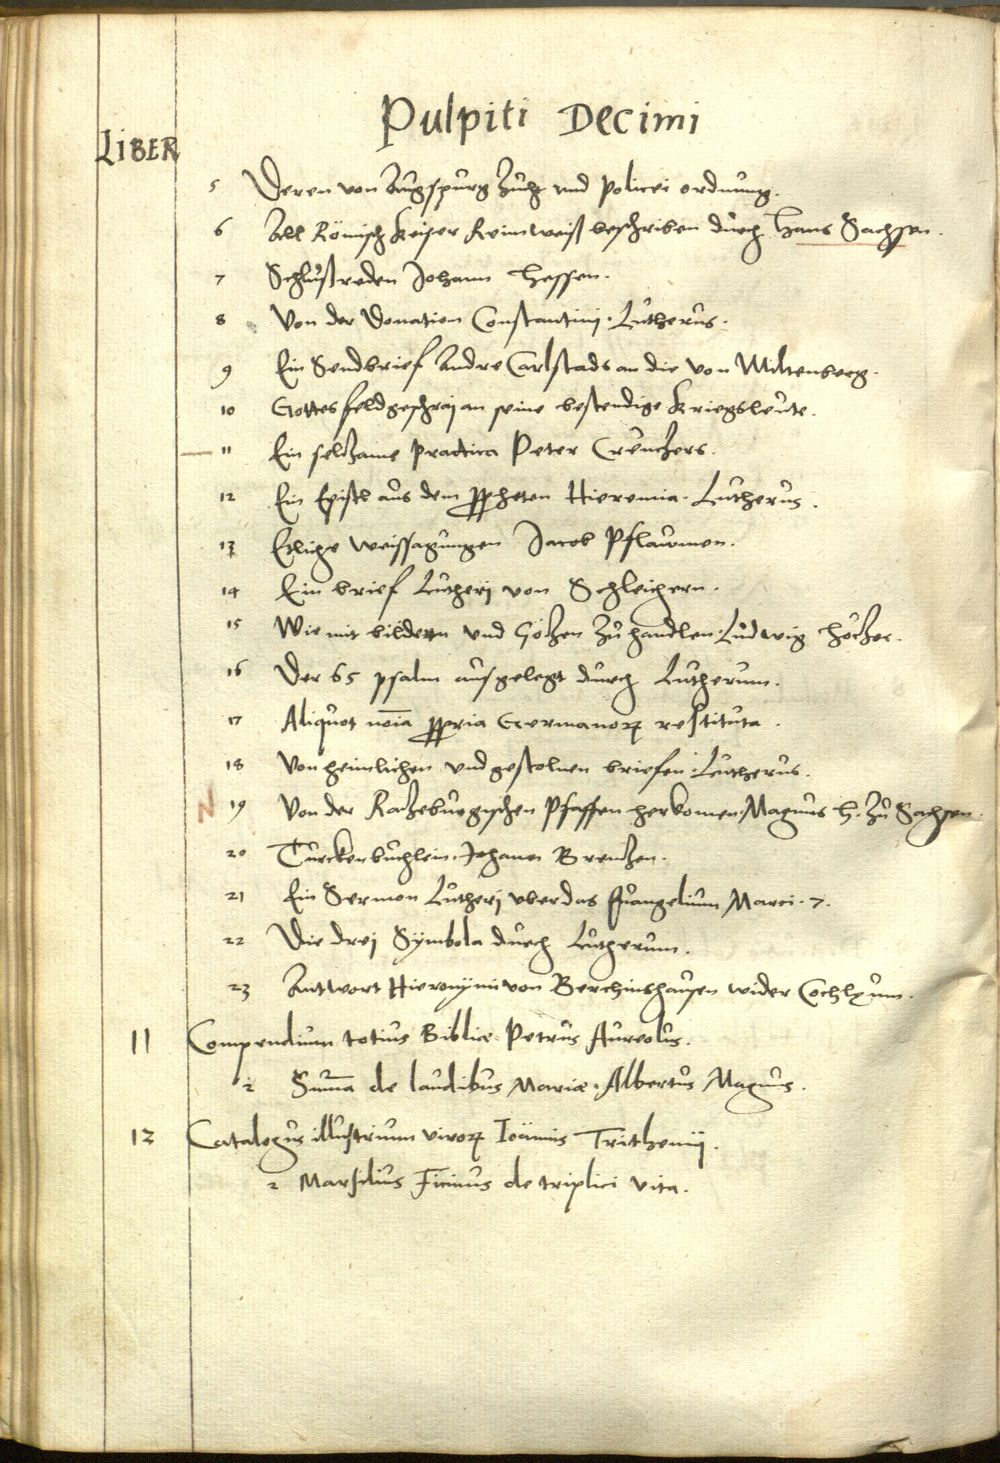 Pulpiti Decimi
LIBER
5 Deren von Augspurg Zucht und Policei ordnung.
6 All Römisch Keiser Reimweiß beschriben durch Hans Sachsen.
7 Schlußreden Johann Hessen.
8 Von der Donation Constantini. Lutherus.
9 Ein Sendbrief Andre Carlstads an die von Miltenberg.
10 Gottes feldgeschraj an seine bestendige Kriegsleute.
11 Ein seltzame practica Peter Creutzers.
12 Ein Epistel aus dem ppheten Hieremia. Lutherus.
13 Etliche weissagungen Jacob Pflaumen.
14 Ein brief Lutherj von Schleichern.
15 Wie mit bildern und Götzen zu handlen. Ludwig Hötzer.
16 Der 65 psalm ausgelegt durch Lutherum.
17 Aliquot noīa ppria Germanoꝝ restituta.
18 Von heimlichen und gestolnen briefen. Lutherus.
N 19 Von der Ratzeburgischen Pfaffen herkomen. Magnus H. zu Sachsen.
20 Turckenbuchlein. Johannen Brentzen.
21 Ein Sermon Lutherj vber das Euangelium Marci. 7.
22 Die drej Symbola durch Lutherum.
23 Antwort Hieronymi von Berchinshausen wider Cochlæum.
11 Compendium totius Bibliæ. Petrus Aureolus.
2 Suma de laudibus Mariæ. Albertus Magnus.
12 Catalogus illustrium viroꝝ Ioannis Trithemij.
2 Marsilius Ficinus de triplici vita.